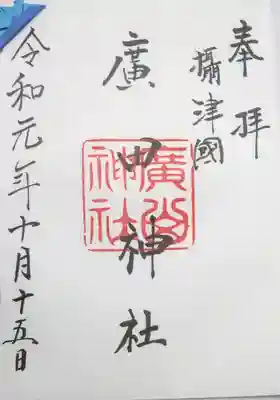 奉拝
攝津國
廣田神社
廣田
神社
令和元年十月十五日